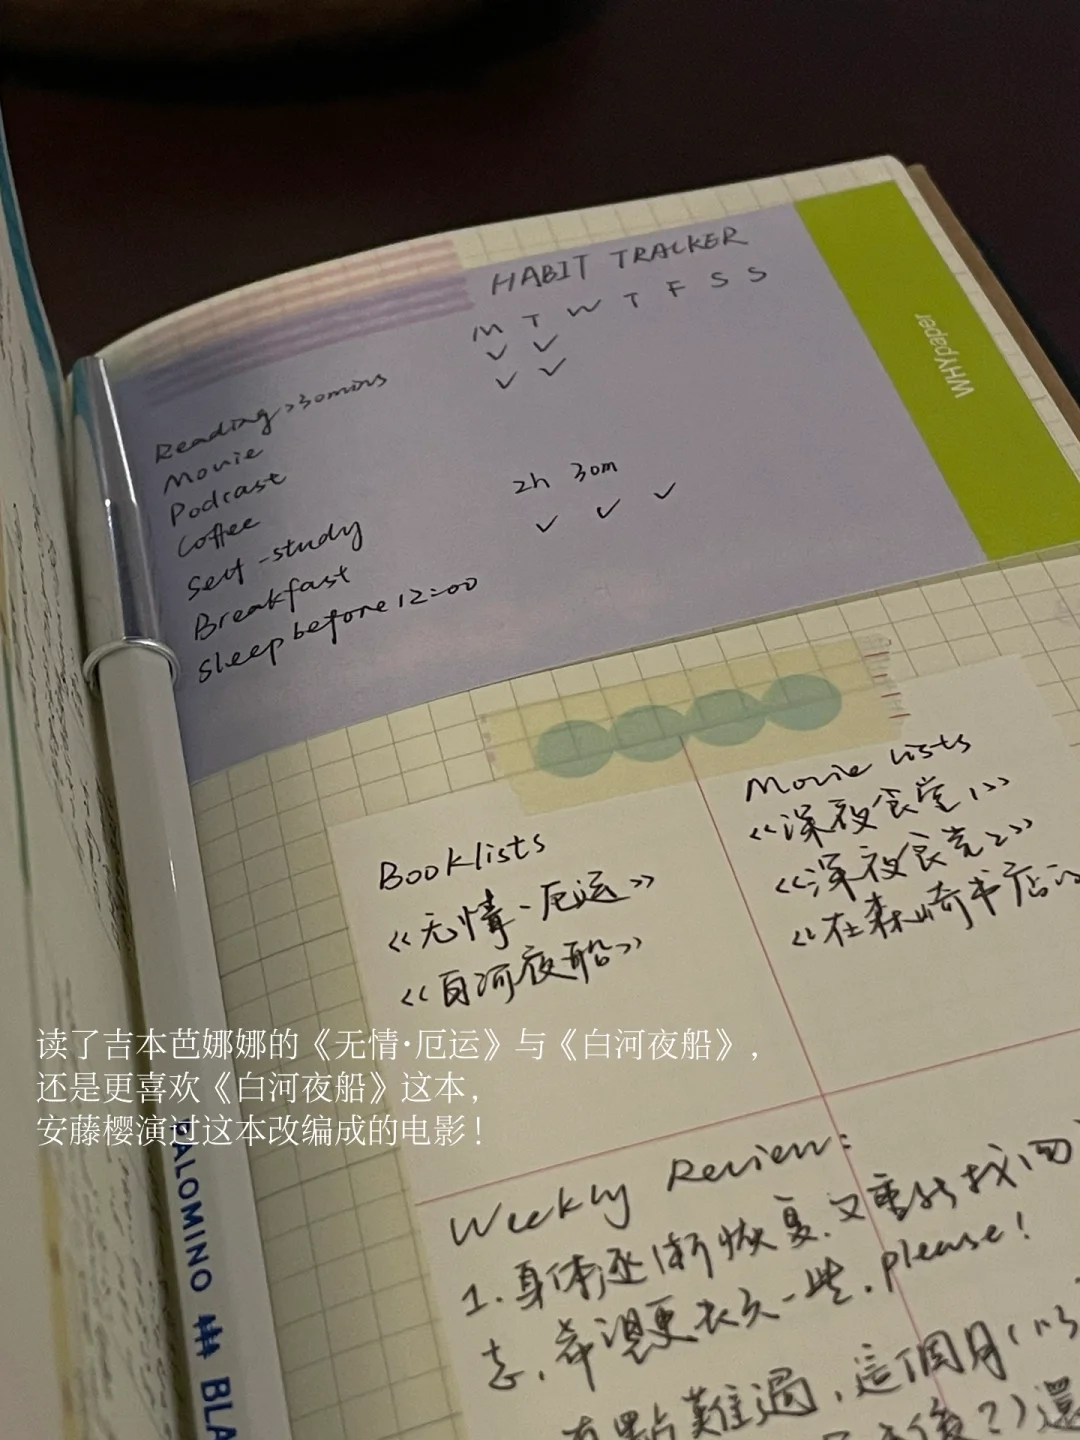 HABIT TRACKER
M T W T F S S
Reading >30mins ✓ ✓
Movie ✓ ✓
Podcast
Coffee
Self-study 2h 30m
Breakfast ✓ ✓ ✓
Sleep before 12:00
WHYpaper
Booklists
《无情·厄运》
《白河夜船》
Movie lists
《深夜食堂1》
《深夜食堂2》
《在森崎书店的
读了吉本芭娜娜的《无情·厄运》与《白河夜船》，
还是更喜欢《白河夜船》这本，
安藤樱演过这本改编成的电影！
PALOMINO BLA
Weekly Review:
1. 身体逐渐恢复.又重新找回
去，希望更长久一些，please！
有點難過，這個月（
後？）還